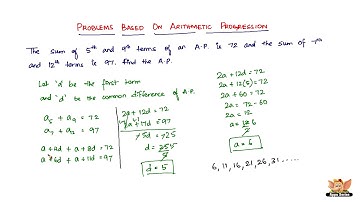 PROBLEMS BASED ON ARITHMETIC PROGRESSION
The sum of 5th and 9th terms of an A.P. is 72 and the sum of 7th
and 12th terms is 97. Find the A.P.
Let 'a' be the first term
and 'd' be the common difference of A.P.
a5 + a9 = 72
a7 + a12 = 97
a + 4d + a + 8d = 72
a + 6d + a + 11d = 97
2a + 12d = 72
2a + 17d = 97
-5d = -25
d = 25/5
d = 5
2a + 12d = 72
2a + 12(5) = 72
2a + 60 = 72
2a = 72 - 60
2a = 12
a = 12/2 6
a = 6
6, 11, 16, 21, 26, 31 .....